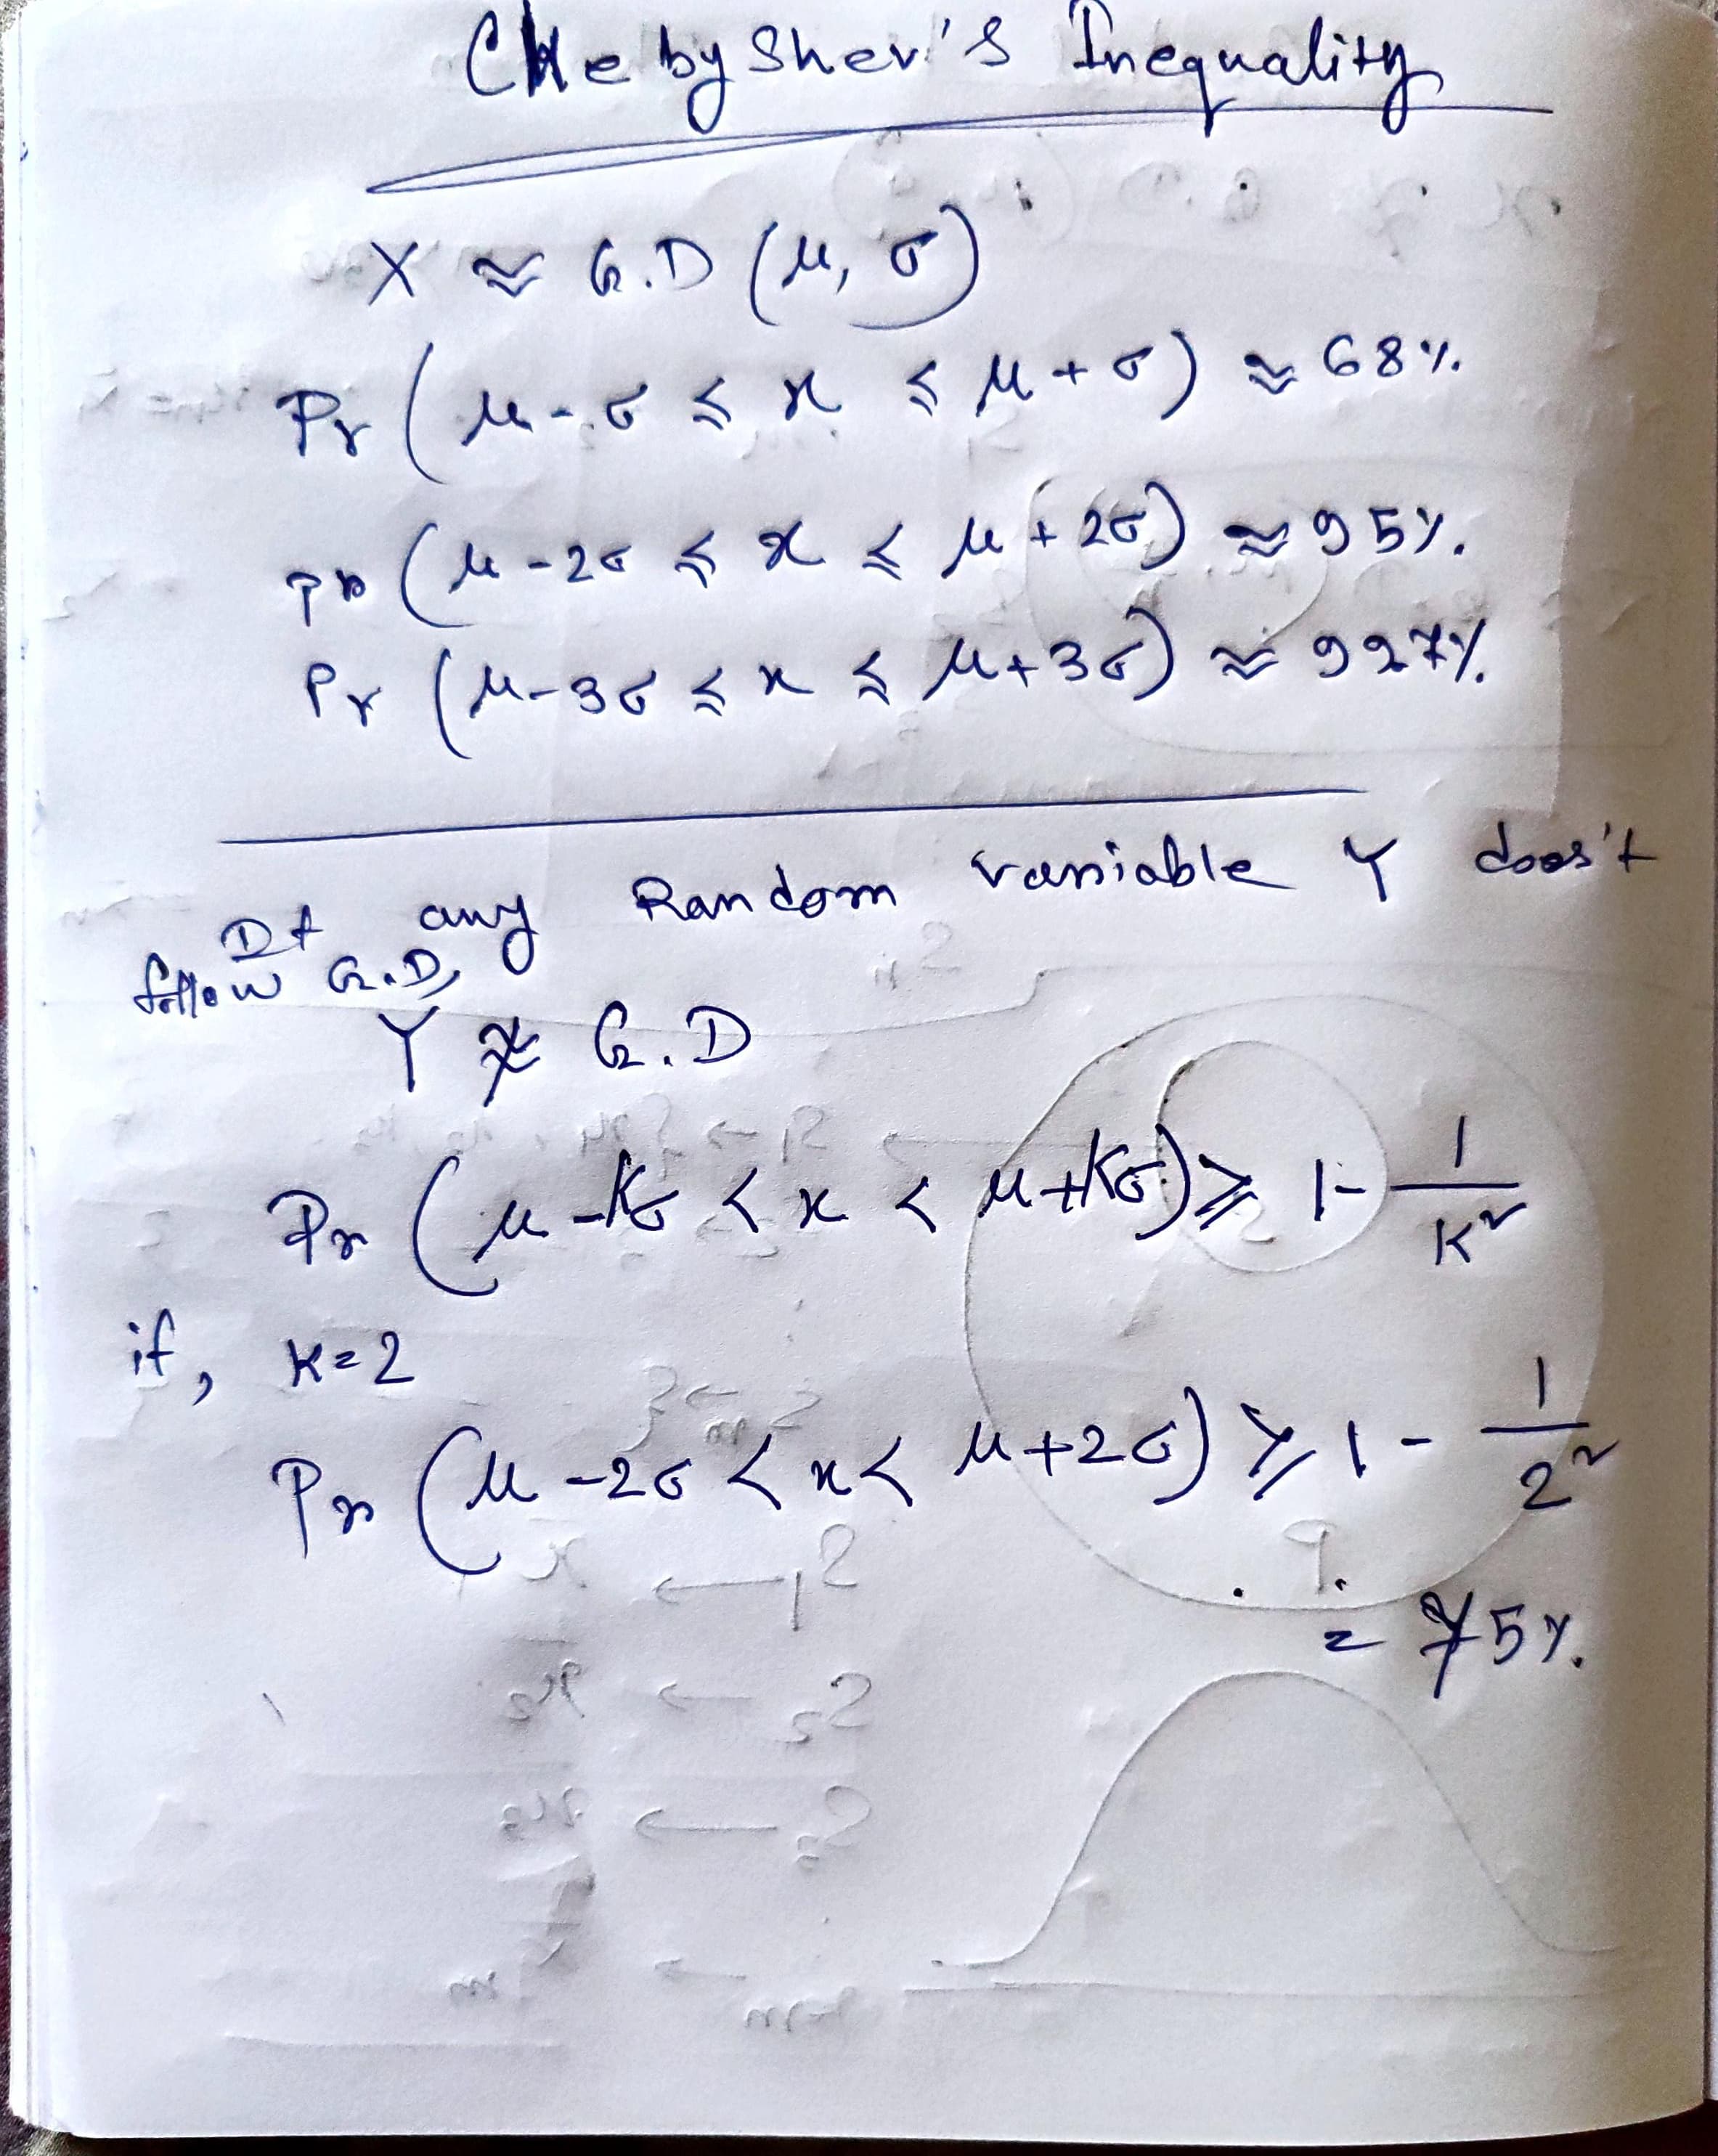 Chebyshev's Inequality
X ≈ G.D (μ, σ)
Pr (μ-σ ≤ x ≤ μ+σ) ≈ 68%.
Pr (μ-2σ ≤ x ≤ μ+2σ) ≈ 95%.
Pr (μ-3σ ≤ x ≤ μ+3σ) ≈ 997%.
If any Random variable Y does't
follow G.D,
Y ≉ G.D
Pr (μ-Kσ < x < μ+Kσ) ≥ 1 - 1/K²
if, K=2
Pr (μ-2σ < x < μ+2σ) ≥ 1 - 1/2²
= 75%.